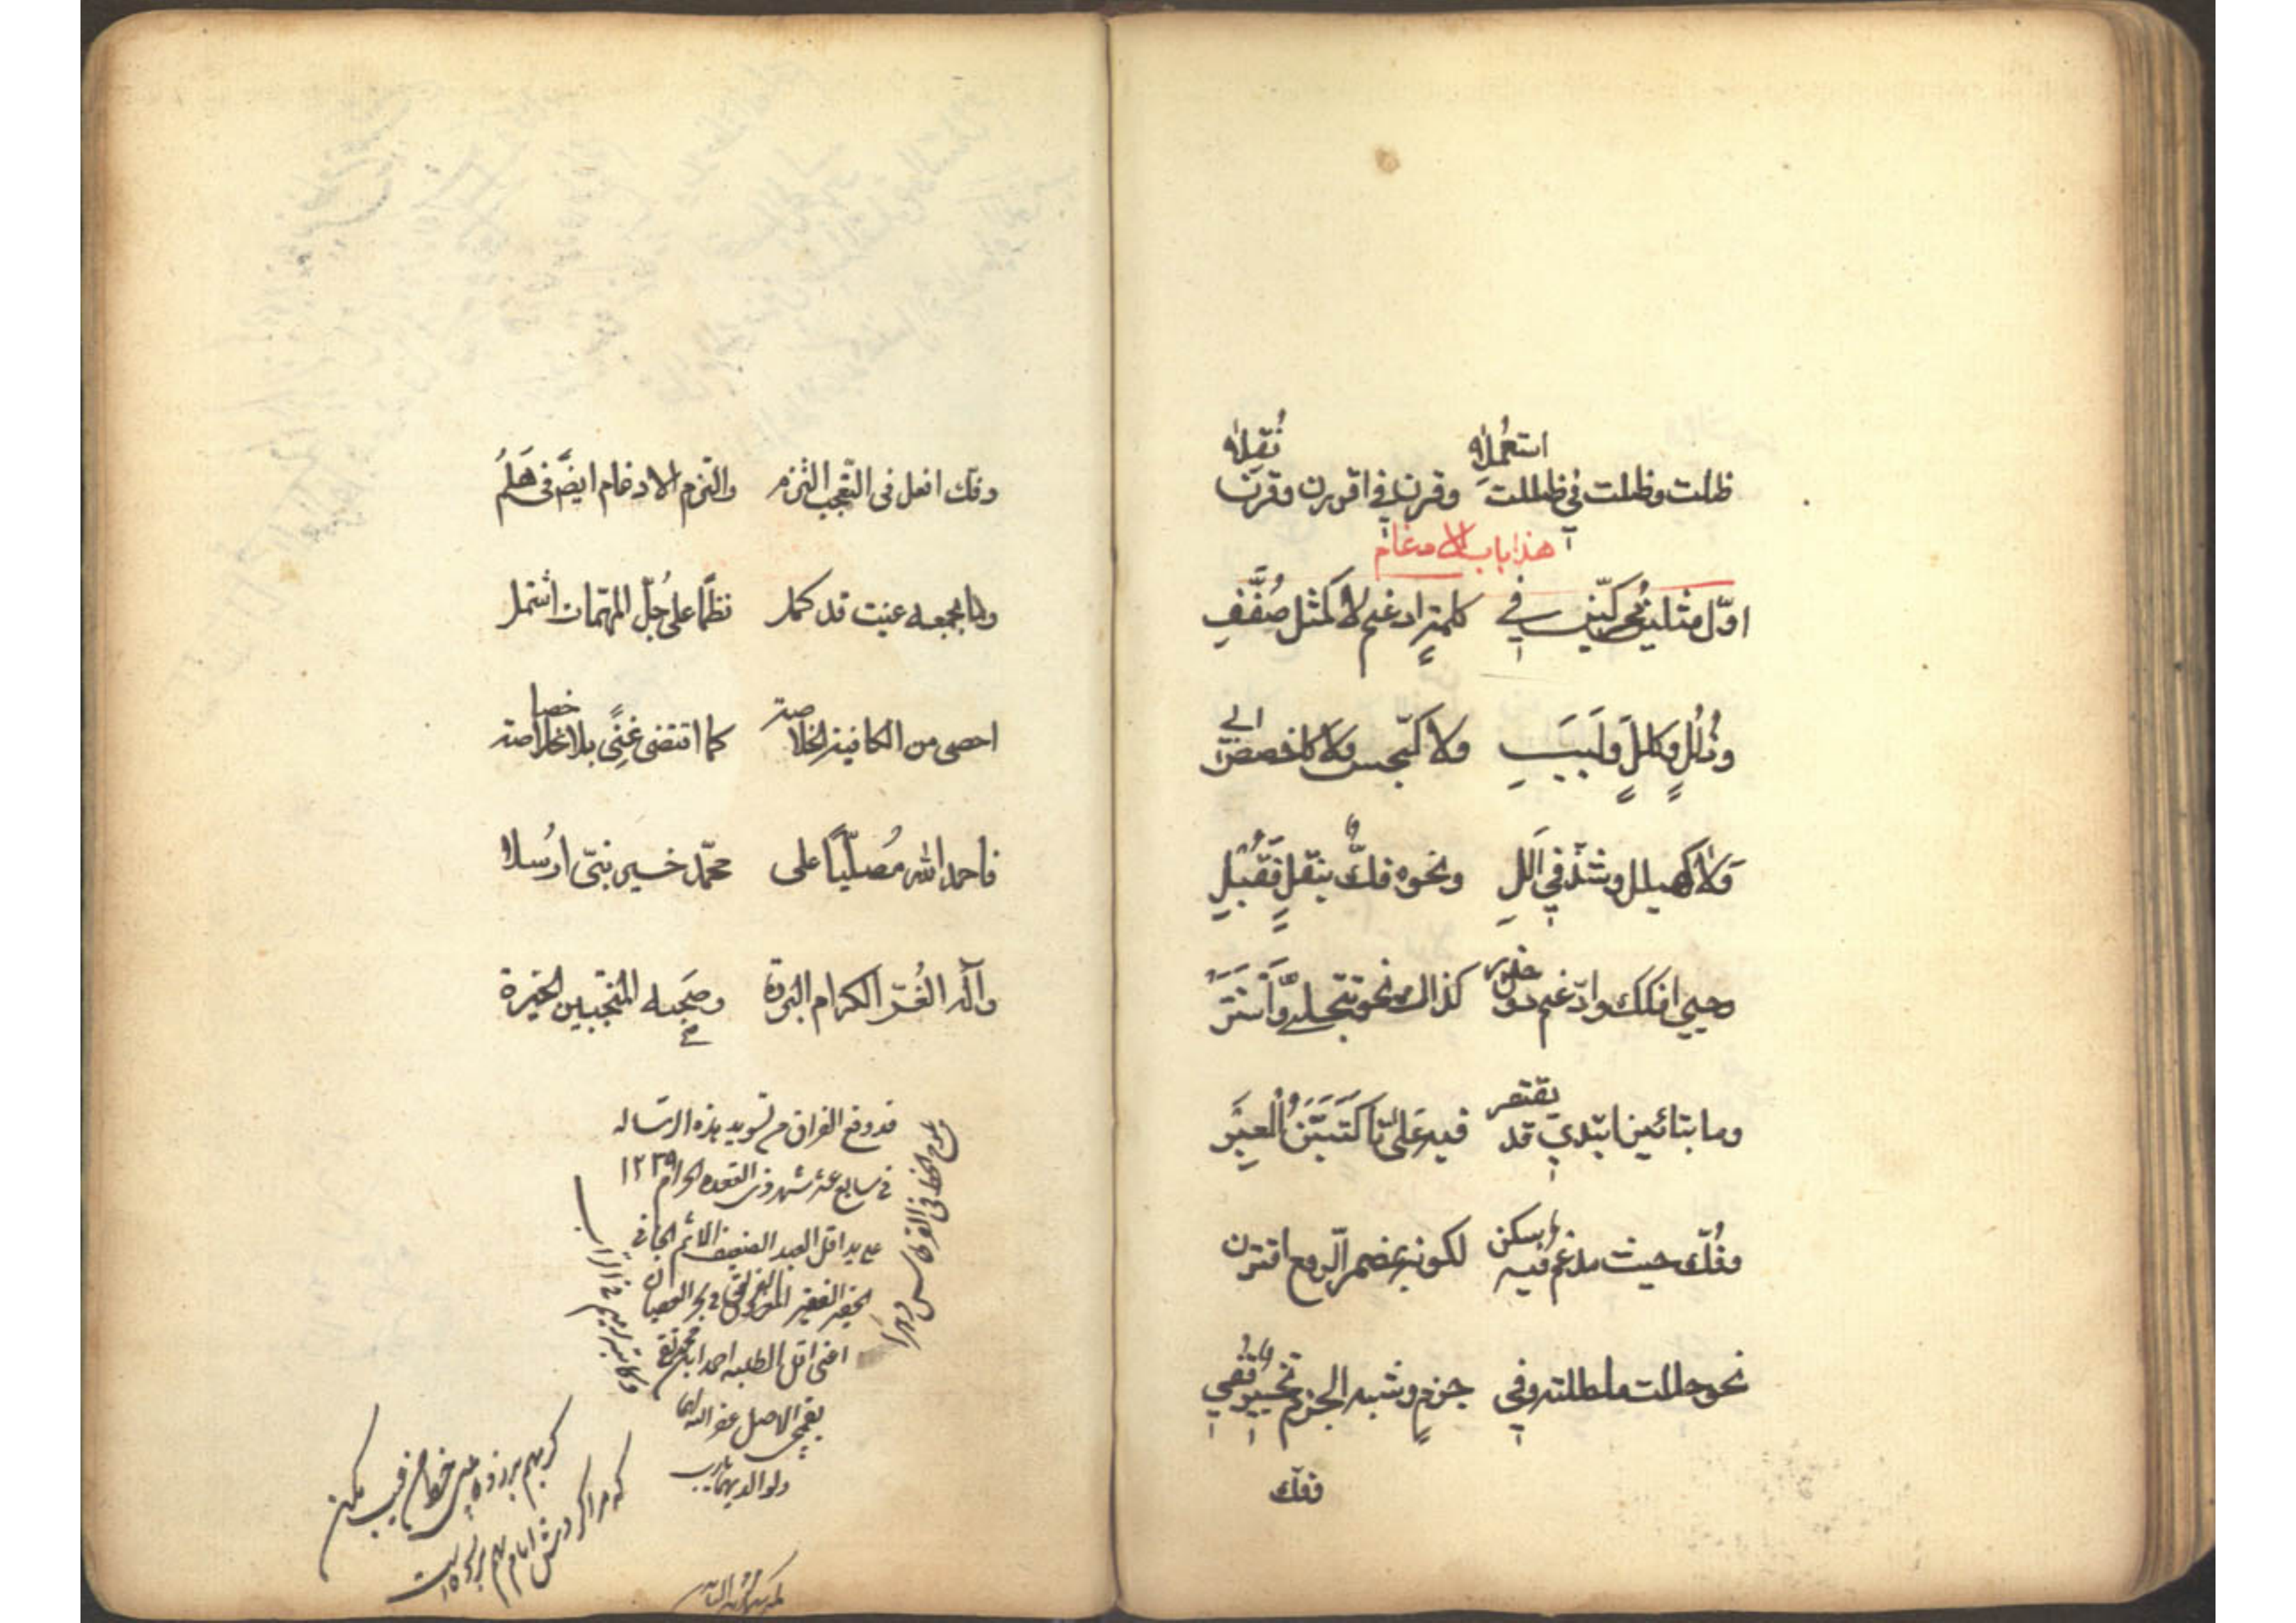 استعملاه نقلاه
ظلت وظلت في ظللت وقرن في اقررن وقرن
هذا باب الادغام
اوّل مثلين محرّكين في كلمة ادغم لا كمثل صُفَفِ
وذُلُلٍ وكِلَلٍ ولَبَبِ ولا كجسّس ولا كاخصص ابي
ولا كهيلل وشذّ في اَلِلِ ونحوه فكّ بنقلٍ فقُبِل
وحيي افكك وادّغم دون حذر كذاك نحو تتجلّى واستتر
وما بتائين ابتدي قد يقتصر فيه على تا كتبيّن العبر
وفُكّ حيث مدغم فيه سكن لكونه بمضمر الرّفع اقترن
نحو حللت ما حللته وفي جزمٍ وشبه الجزم تخيير قفي
ففك
وفك افعل في التّعجب التزم والتزم الادغام ايضًا في هَلُمّ
وما بجمعه عنيت قد كمل نظمًا على جُلّ المهمّات اشتمل
احصى من الكافية الخلاصة كما اقتضى غنًى بلا خصاصة
فاحمد الله مُصلّيًا على محمّد خير نبيّ ارُسلا
وآله الغُرّ الكرام البررة وصَحبه المنتجبين الخيرة
قد وقع الفراق من تسويد هذه الرساله
في سابع عشر شهر ذي القعده الحرام ١٢٣٩
على يد اقل العبد الضعيف الاثم الجاني
الحقير الفقير الغريق في بحر العصيان
اعنى اقل الطلبه احمد ابن محمد تقي
الاصل عفى الله
ولوالديهما يارب
يلوح الخط في القرطاس دهرا
وكاتبه رميم في التراب
كر بهم برزده بينى خط من عيب مكن
كه مرا كردش ايام بهم بر زده است